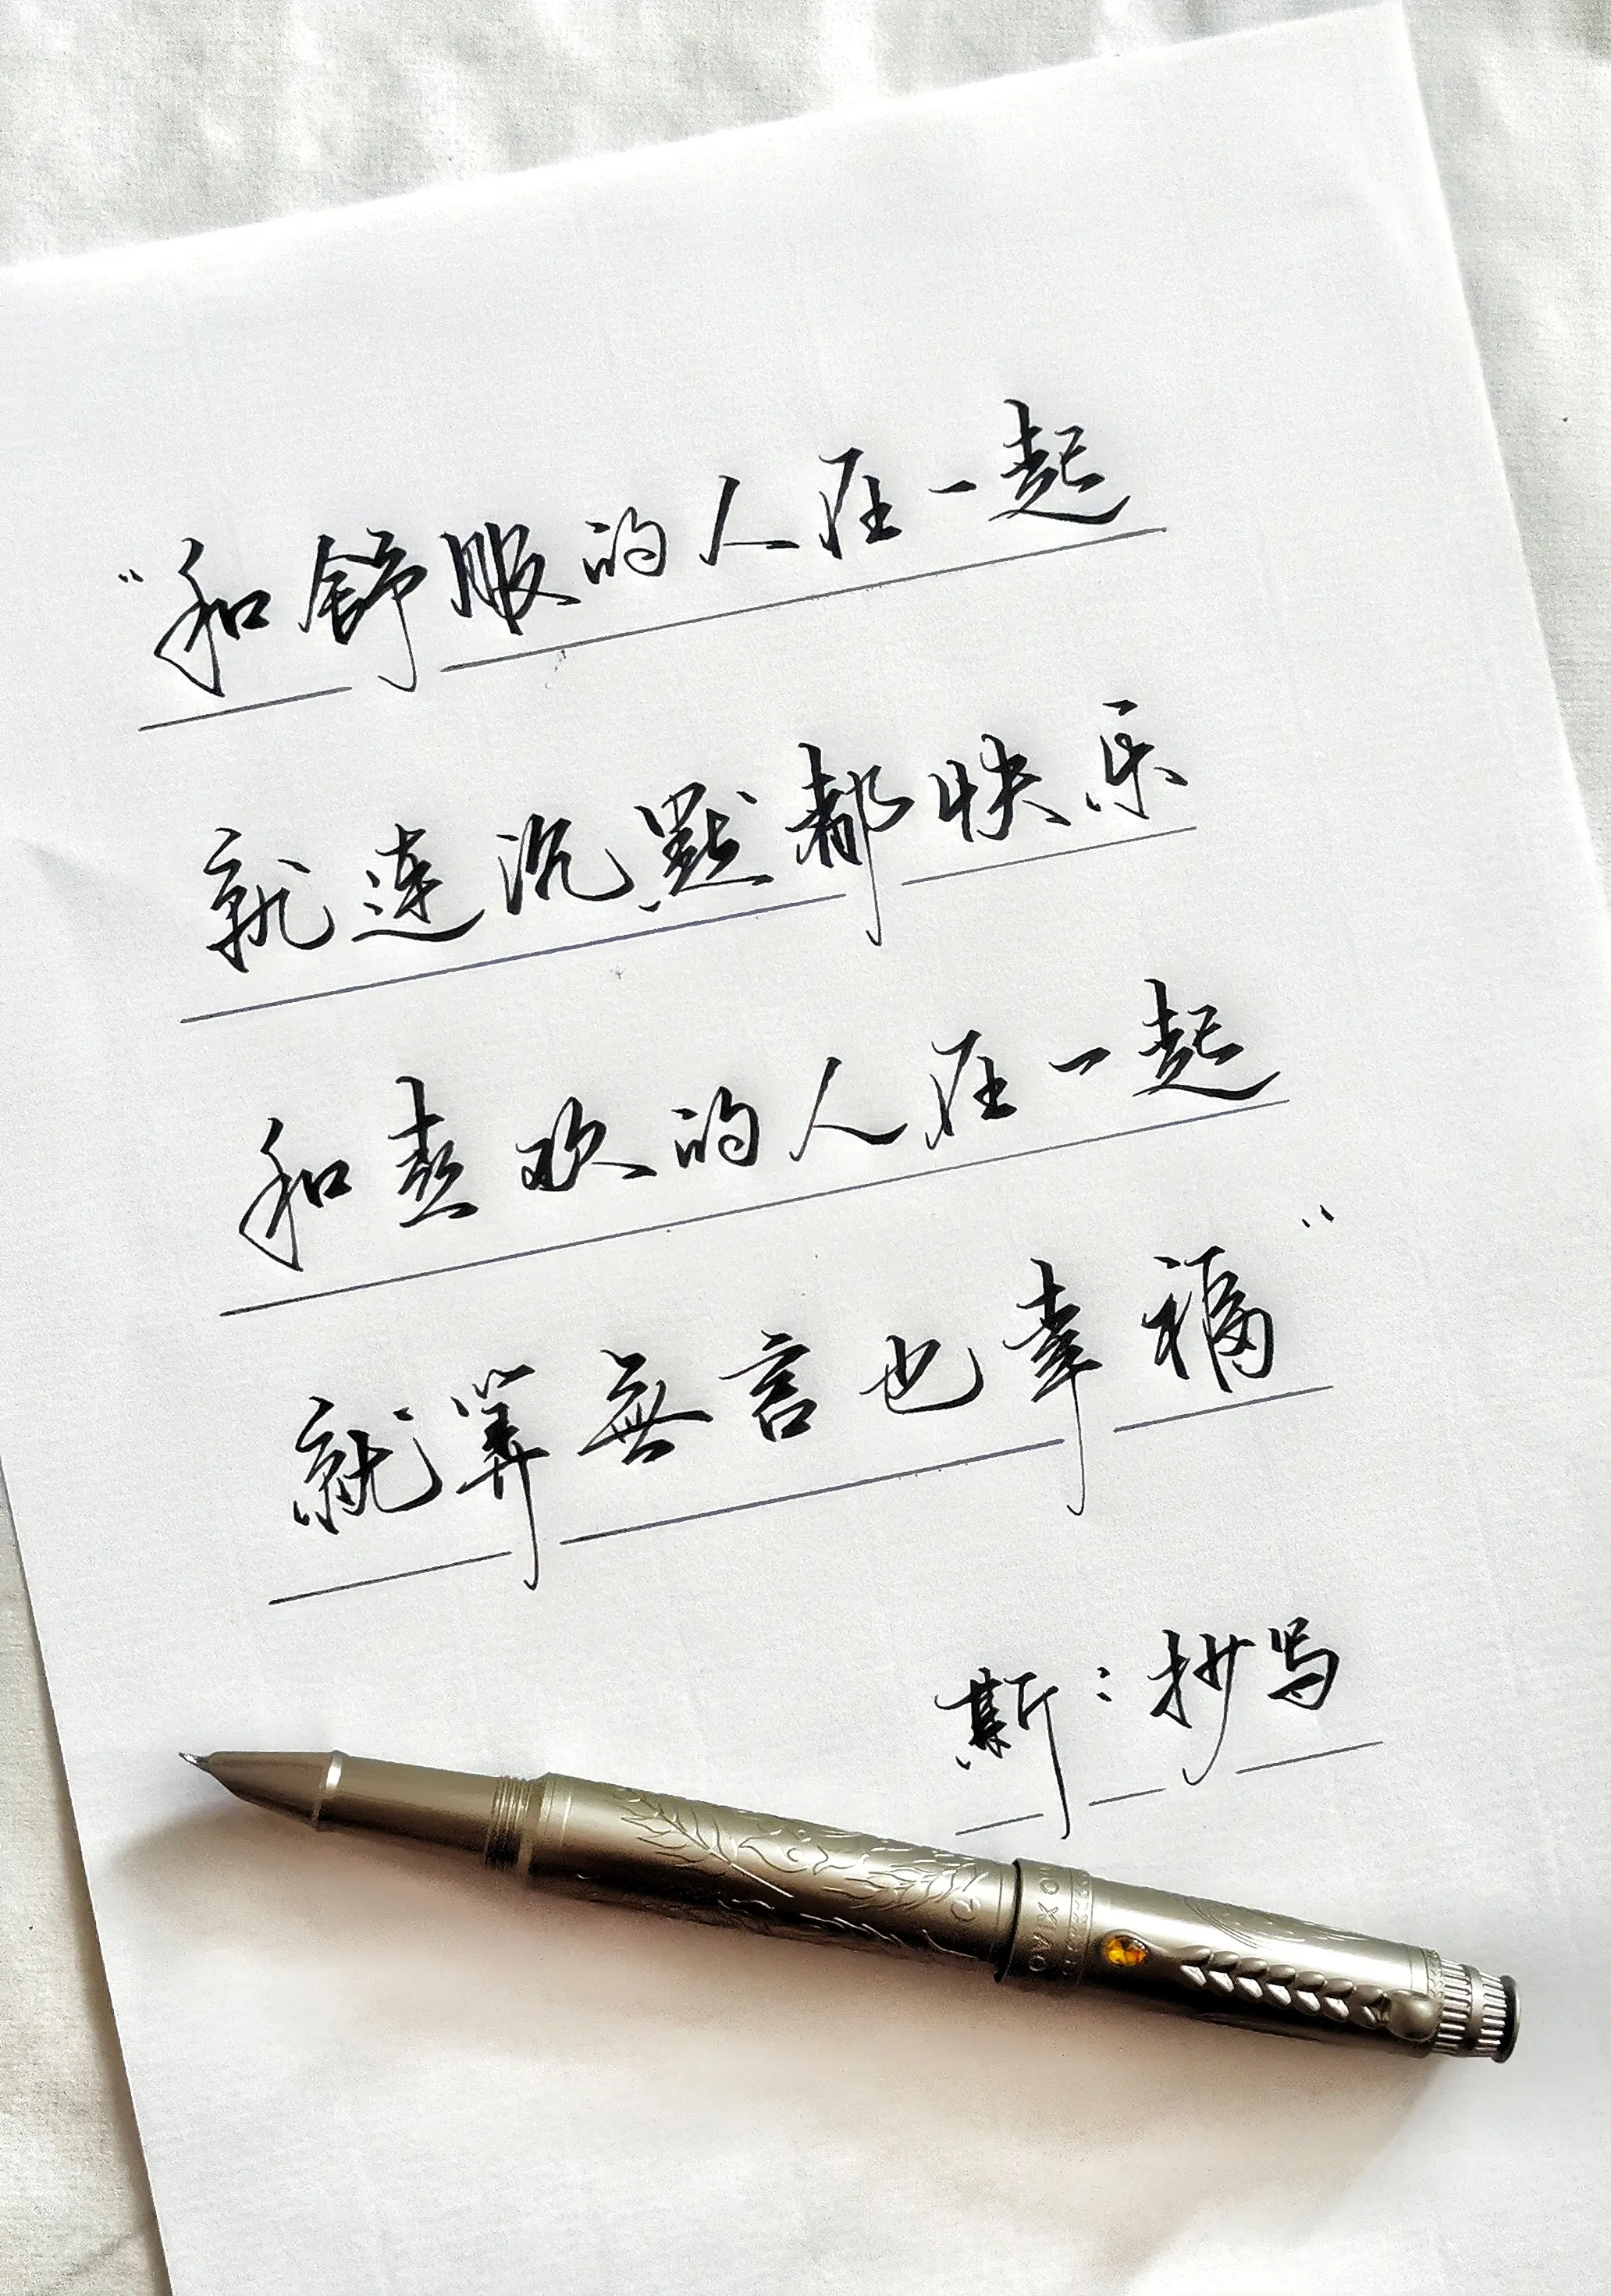 “和舒服的人在一起
就連沉默都快乐
和喜欢的人在一起
就算無言也幸福”
斯：抄写